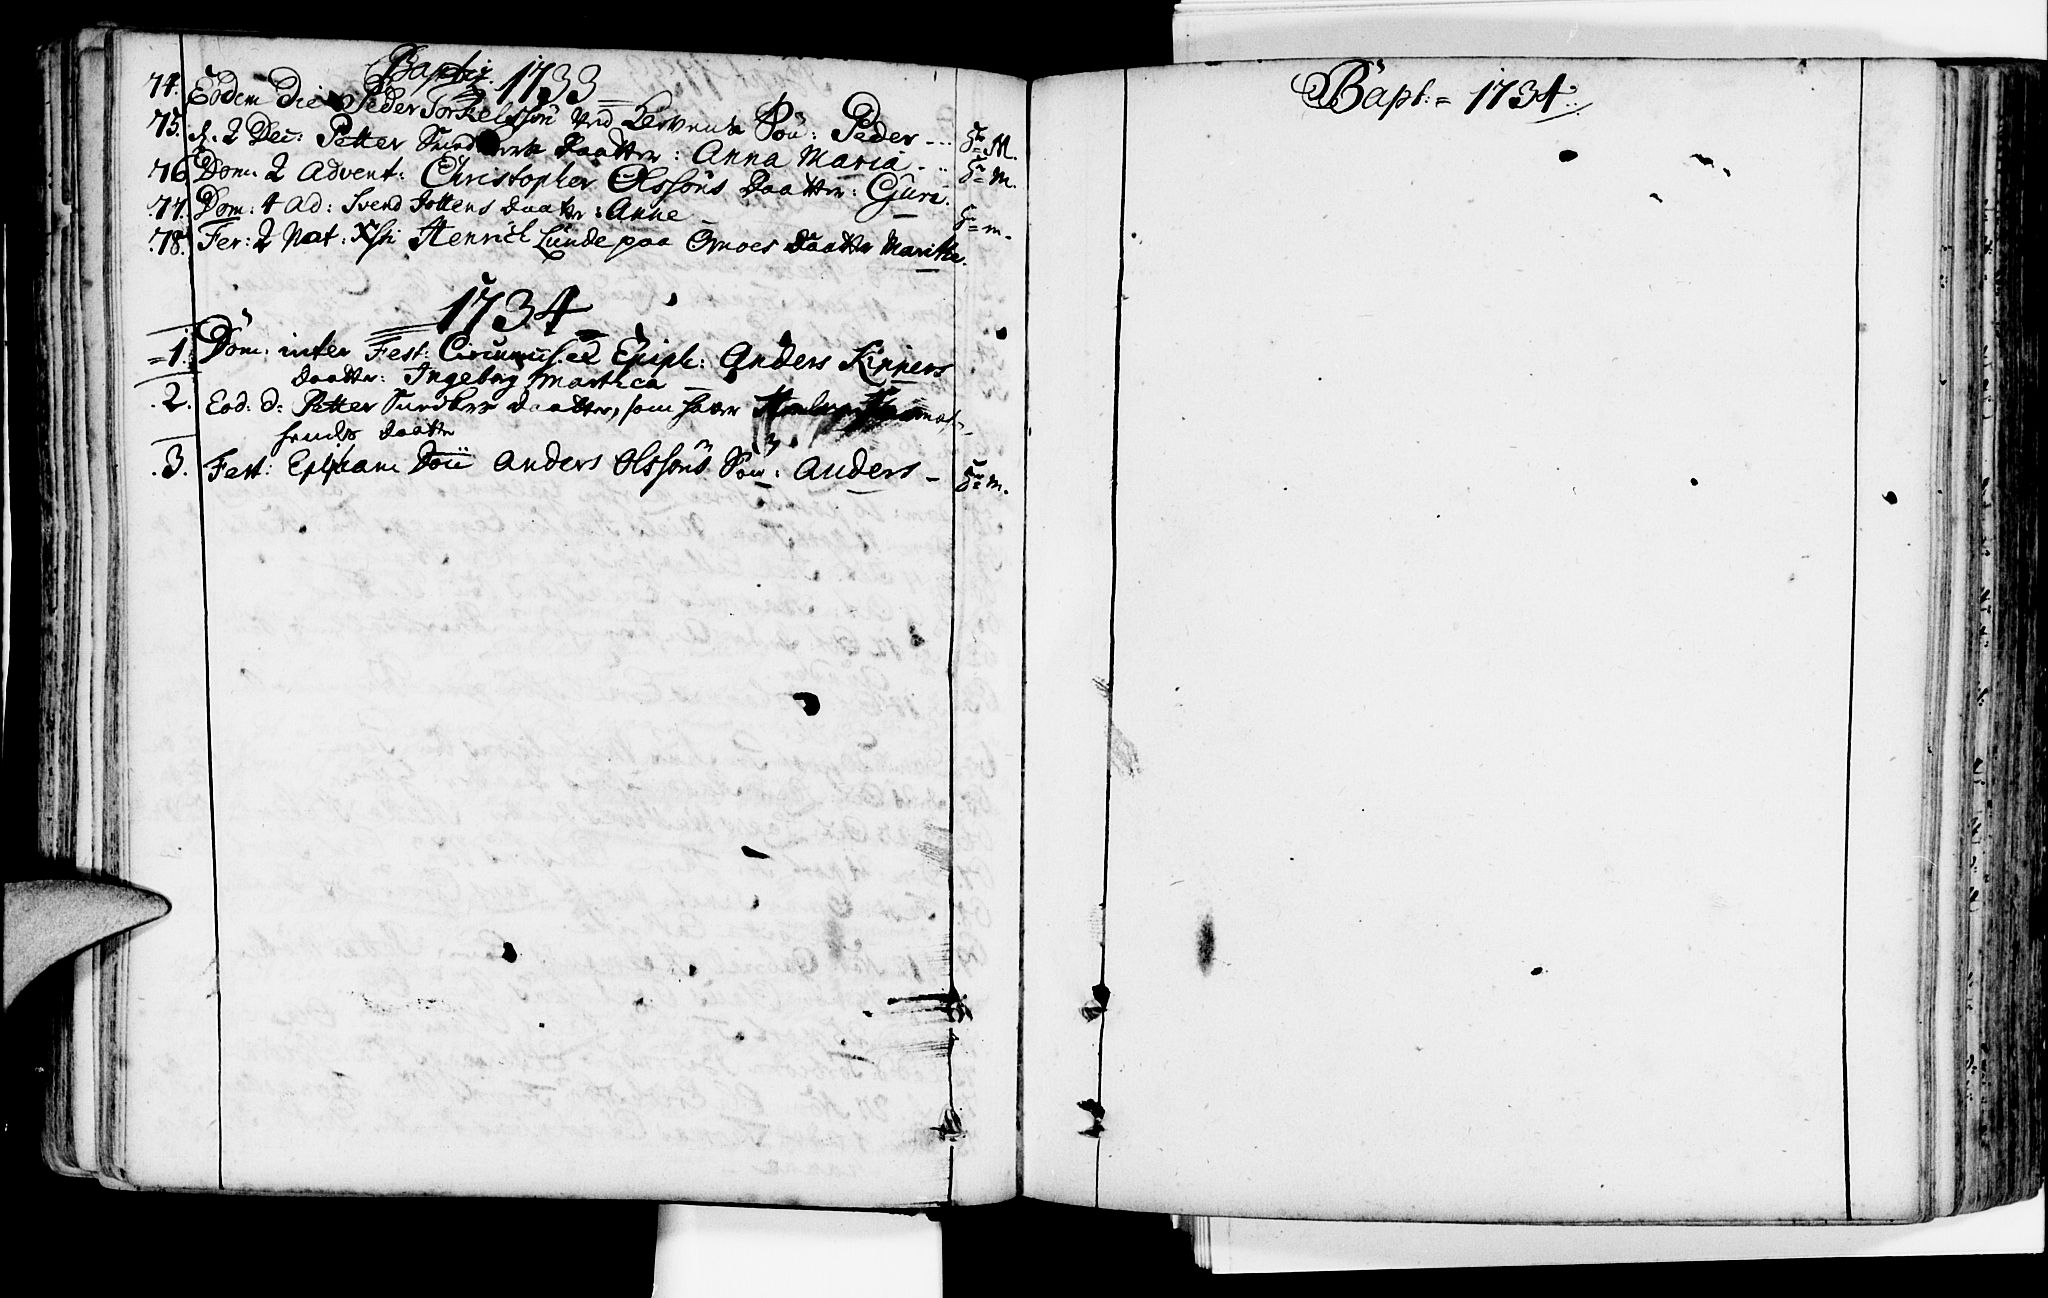 Baptiz. 1733
74. Eodem Die Peder Torkelssøn ved Lervens Søn: Peder ---
75. d. 2 Dec: Petter Daatter: Anna Maria - H=M.
76 Dom. 2 Advent: Christopher Olssøns Daatter: Guri. H=M.
77. Dom: 4 Ad: Svend Daatter: Anne
78. Fer: 2 Nat: Xsti Henrich Lunde paa Omoes Daatter Marithe. H=m.
1734
1. Dom: inter Fest: Circumcis. et Epiph: Anders Kippers
Daatter: Ingeborg Marthea
2. Eod: d: Petter Daatter, som haver
hendes Daatter
3. Fest: Epiphani Dom Anders Olssøns Søn: Anders - H=m.
Bapt:= 1734.